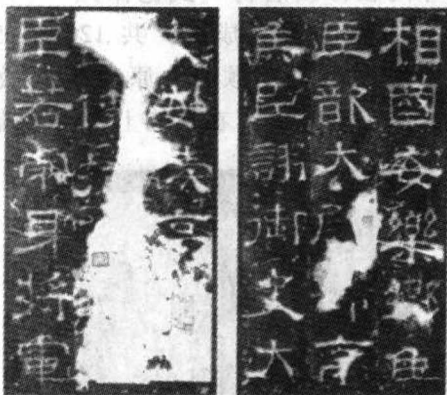 相國安樂鄉侯
臣歆太亭
侯臣詡御史大
夫安陵亭
臣若虎牙將軍